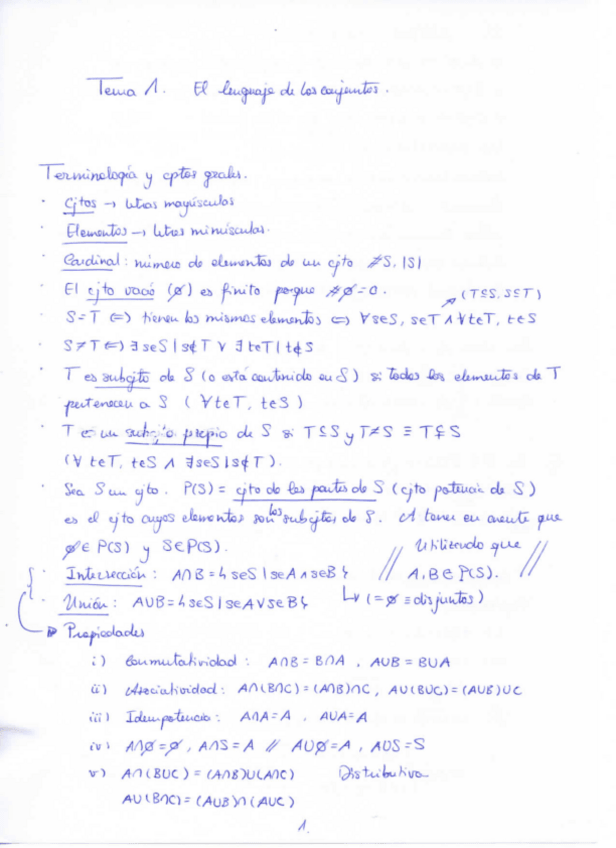 Tema 1. El lenguaje de los conjuntos.
Terminología y cptos grales.
· Cjtos → letras mayúsculas
· Elementos → letras minúsculas.
· Cardinal: número de elementos de un cjto #S, |S|
· El cjto vacío (∅) es finito porque #∅=0.
(T⊆S, S⊆T)
· S=T ⇔ tienen los mismos elementos ⇔ ∀s∈S, s∈T ∧ ∀t∈T, t∈S
· S≠T ⇔ ∃s∈S | s∉T ∨ ∃t∈T | t∉S
· T es subcjto de S (o está contenido en S) si todos los elementos de T
pertenecen a S (∀t∈T, t∈S)
· T es un subcjto propio de S si T⊆S y T≠S ≡ T⊊S
(∀t∈T, t∈S ∧ ∃s∈S | s∉T).
· Sea S un cjto. P(S) = cjto de las partes de S (cjto potencia de S)
es el cjto cuyos elementos son los subcjtos de S. A tener en cuenta que
∅∈P(S) y S∈P(S). // Utilizando que //
· Intersección: A∩B={s∈S | s∈A ∧ s∈B} A,B∈P(S).
· Unión: A∪B={s∈S | s∈A ∨ s∈B} ↳ (=∅ ≡ disjuntos)
→ Propiedades
i) Conmutatividad: A∩B=B∩A, A∪B=B∪A
ii) Asociatividad: A∩(B∩C)=(A∩B)∩C, A∪(B∪C)=(A∪B)∪C
iii) Idempotencia: A∩A=A, A∪A=A
iv) A∩∅=∅, A∩S=A // A∪∅=A, A∪S=S
v) A∩(B∪C)=(A∩B)∪(A∩C) Distributiva
A∪(B∩C)=(A∪B)∩(A∪C)
1.